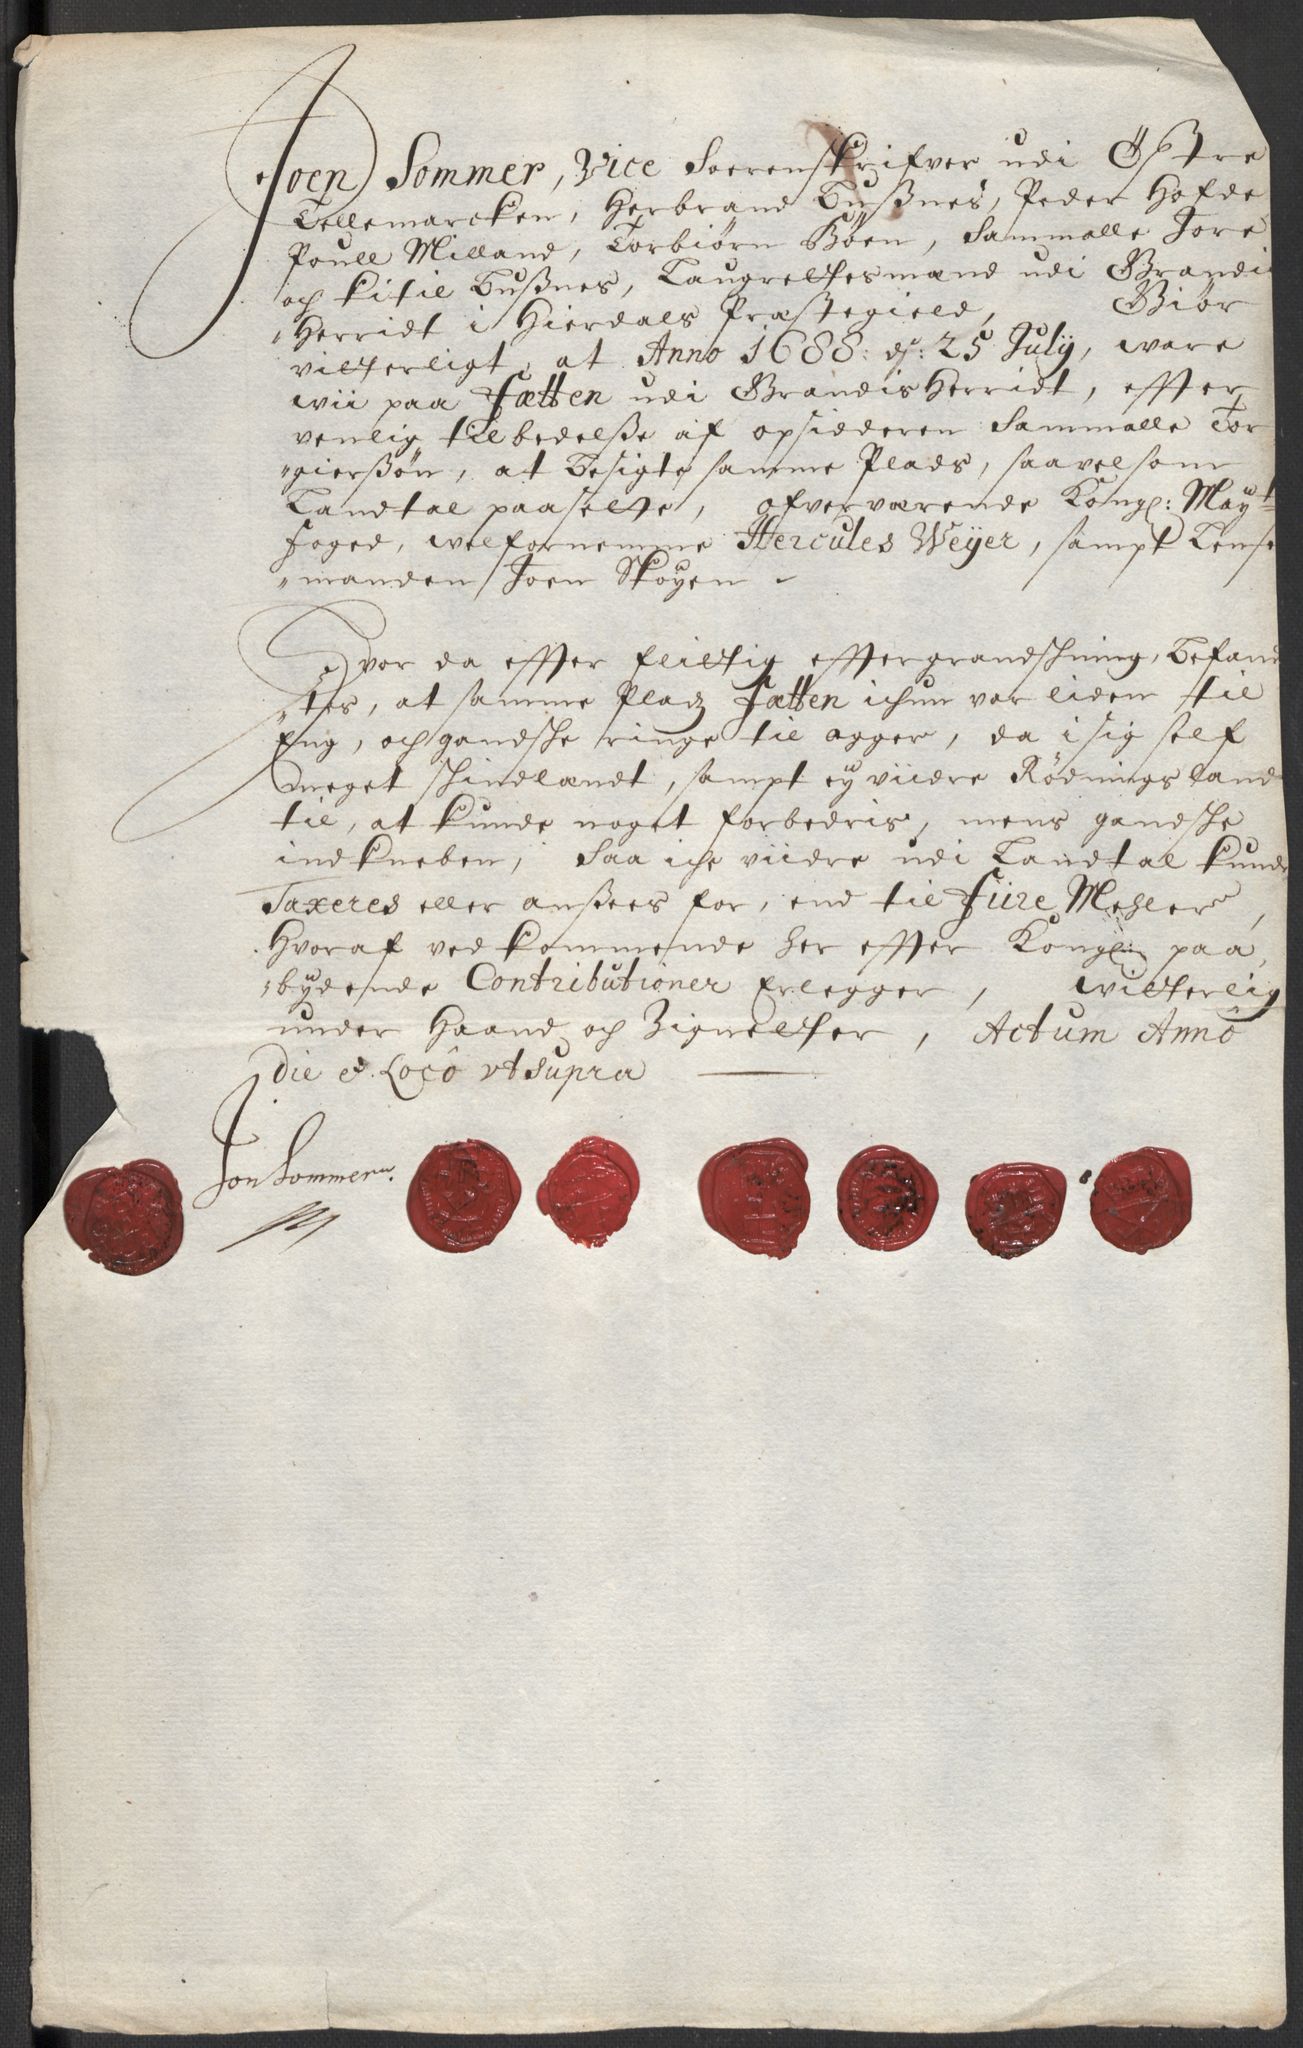 Joen Sommer, Vice Sorenskrifver udi Östre
Tellemarcken, Herbrand Tußnes, Peder Hofde
Poull Milland, Torbiörn Böen, Sammolle Jore
och Kitil Tußnes, Laugrettesmænd udi Brandis
"Herridt i Hierdals Præstegield, Giör
vitterligt, at Anno 1688: d: 25 July, ware
wii paa Fætten udi Brandisherridt, effter
venlig tilbedelße af opsidderen Sammolle Tor
"gierßön, at besigte samme Plads, saavelsom
Landtal paasette, ofverværende Kongl: Mayt:
foged, welfornemme Hercules Weÿer, sampt Lens
"manden Joen Skoyen
Hvor da effter flittig efftergrandschning, befand
"tes, at samme Pladz Fætten ichun var liden til
Eng, och gandsche ringe til agger, da i sig self
meget schindlændt, sampt eÿ viidre Rödningsland
til, at kunde noget forbedris, mens gandsche
indkneben, Saa iche viidre udi Landtal kunde
Taxeres eller anßees for, end til Fiire Mehler,
Hvoraf vedkommende her effter Kongl: paa
"bydende Contributioner Erlegger, witterlig
under Haand och Zignetter, Actum Annô
Die & Locô ut supra
Jon Sommer